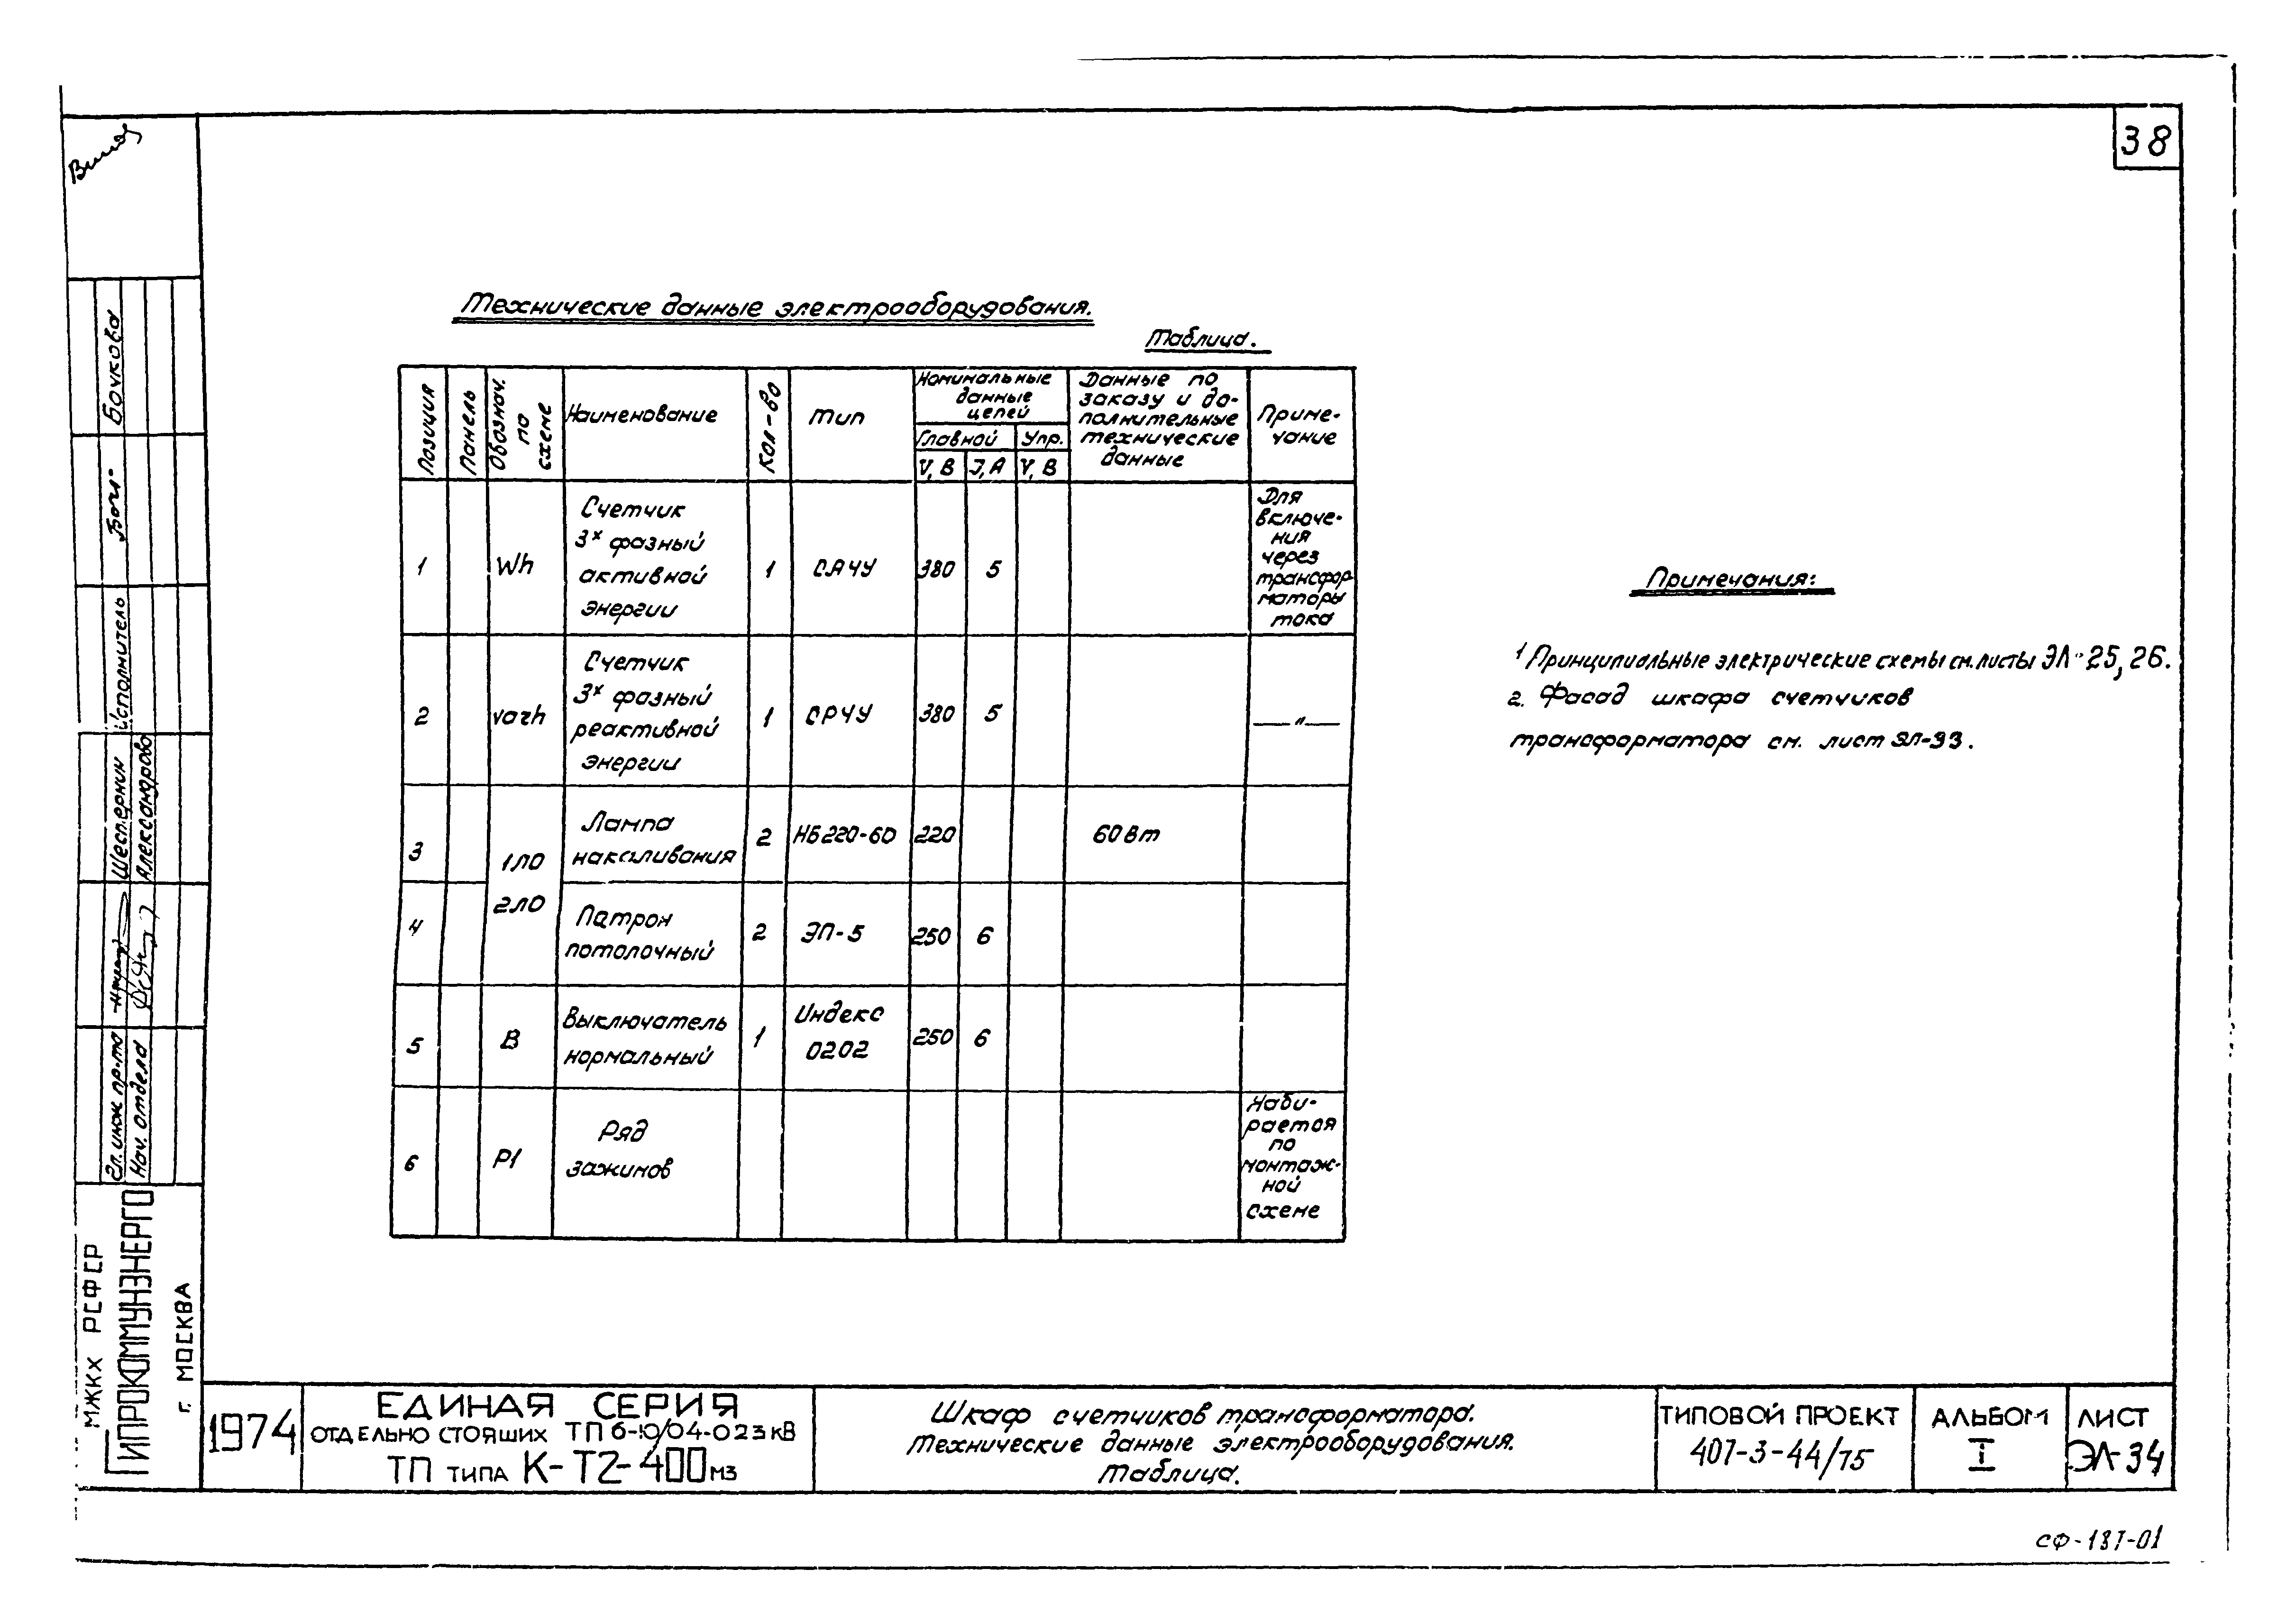 38
Технические данные электрооборудования.
Таблица.
Позиция
Панель
Обознач. по схеме
Наименование
Кол-во
Тип
Номинальные
данные
цепей
Главной
Упр.
V, В
J, А
V, В
Данные по
заказу и до-
полнительные
технические
данные
Приме-
чание
1
Wh
Счетчик
3х фазный
активной
энергии
1
САЧУ
380
5
Для
включе-
ния
через
трансфор
маторы
тока
2
varh
Счетчик
3х фазный
реактивной
энергии
1
СРЧУ
380
5
— " —
3
1ЛО
Лампа
накаливания
2
НБ220-60
220
60Вт
4
2ЛО
Патрон
потолочный
2
ЭП-5
250
6
5
В
Выключатель
нормальный
1
Индекс
0202
250
6
6
Р1
Ряд
зажимов
Наби-
рается
по
монтаж-
ной
схеме
Примечания:
1 Принципиальные электрические схемы см. листы ЭЛ-25,26.
2. Фасад шкафа счетчиков
трансформатора см. лист ЭЛ-33.
Бочкова
Исполнитель
Шеспернин
Александрова
Гл. инж. пр-та
Нач. отдела
МЖКХ РСФСР
ГИПРОКОММУНЭНЕРГО
г. МОСКВА
1974
ЕДИНАЯ СЕРИЯ
ОТДЕЛЬНО СТОЯЩИХ ТП 6-10/04-023 кВ
ТП ТИПА К-Т2-400 м3
Шкаф счетчиков трансформатора.
Технические данные электрооборудования.
Таблица.
ТИПОВОЙ ПРОЕКТ
407-3-44/75
АЛЬБОМ
I
ЛИСТ
ЭЛ-34
СФ-137-01